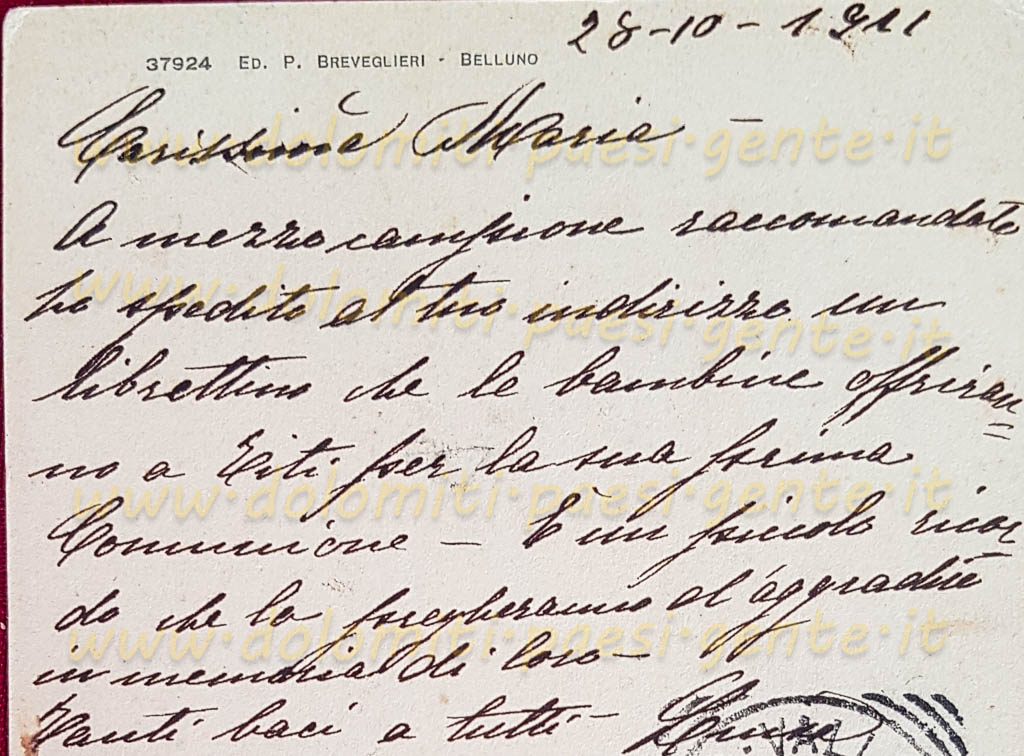 28-10-1911
37924 ED. P. BREVEGLIERI - BELLUNO
Carissima Maria -
A mezzo campione raccomandato
ho spedito al tuo indirizzo un
librettino che le bambine offriran=
no a Titi per la sua prima
Comunione - È un piccolo ricor
do che lo pregheranno d'aggradire
in memoria di loro -
Tanti baci a tutti -
www.dolomiti.paesi.gente.it
www.dolomiti.paesi.gente.it
www.dolomiti.paesi.gente.it
www.dolomiti.paesi.gente.it